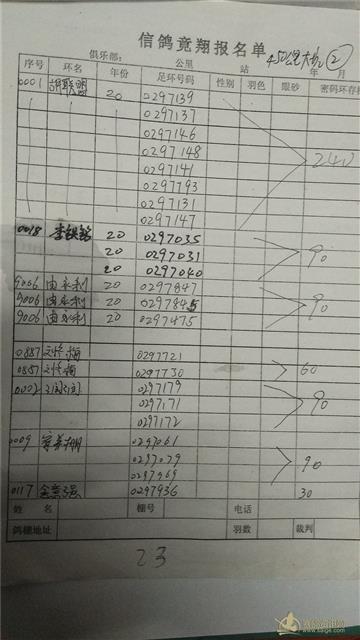 信鸽竟翔报名单
俱乐部: 公里 站 年 月
450公里 ②
序号 环名 年份 足环号码 性别 羽色 眼砂 密码环存根
0001 胡联盟 20 0297139
0297137
0297146
0297148
0297141 240
0297793
0297131
0297147
0018 李 20 0297035
20 0297031 90
20 0297040
9006 由永利 20 0297847
9006 由永利 20 0297845 90
9006 由永利 20 0297475
0887 0297721
0857 0297730 60
0002 0297179
0297171 90
0297172
0009 0297061
0297079 90
0297969
0117 0297936 30
姓名 棚号 电话
鸽棚地址 羽数 裁判
23